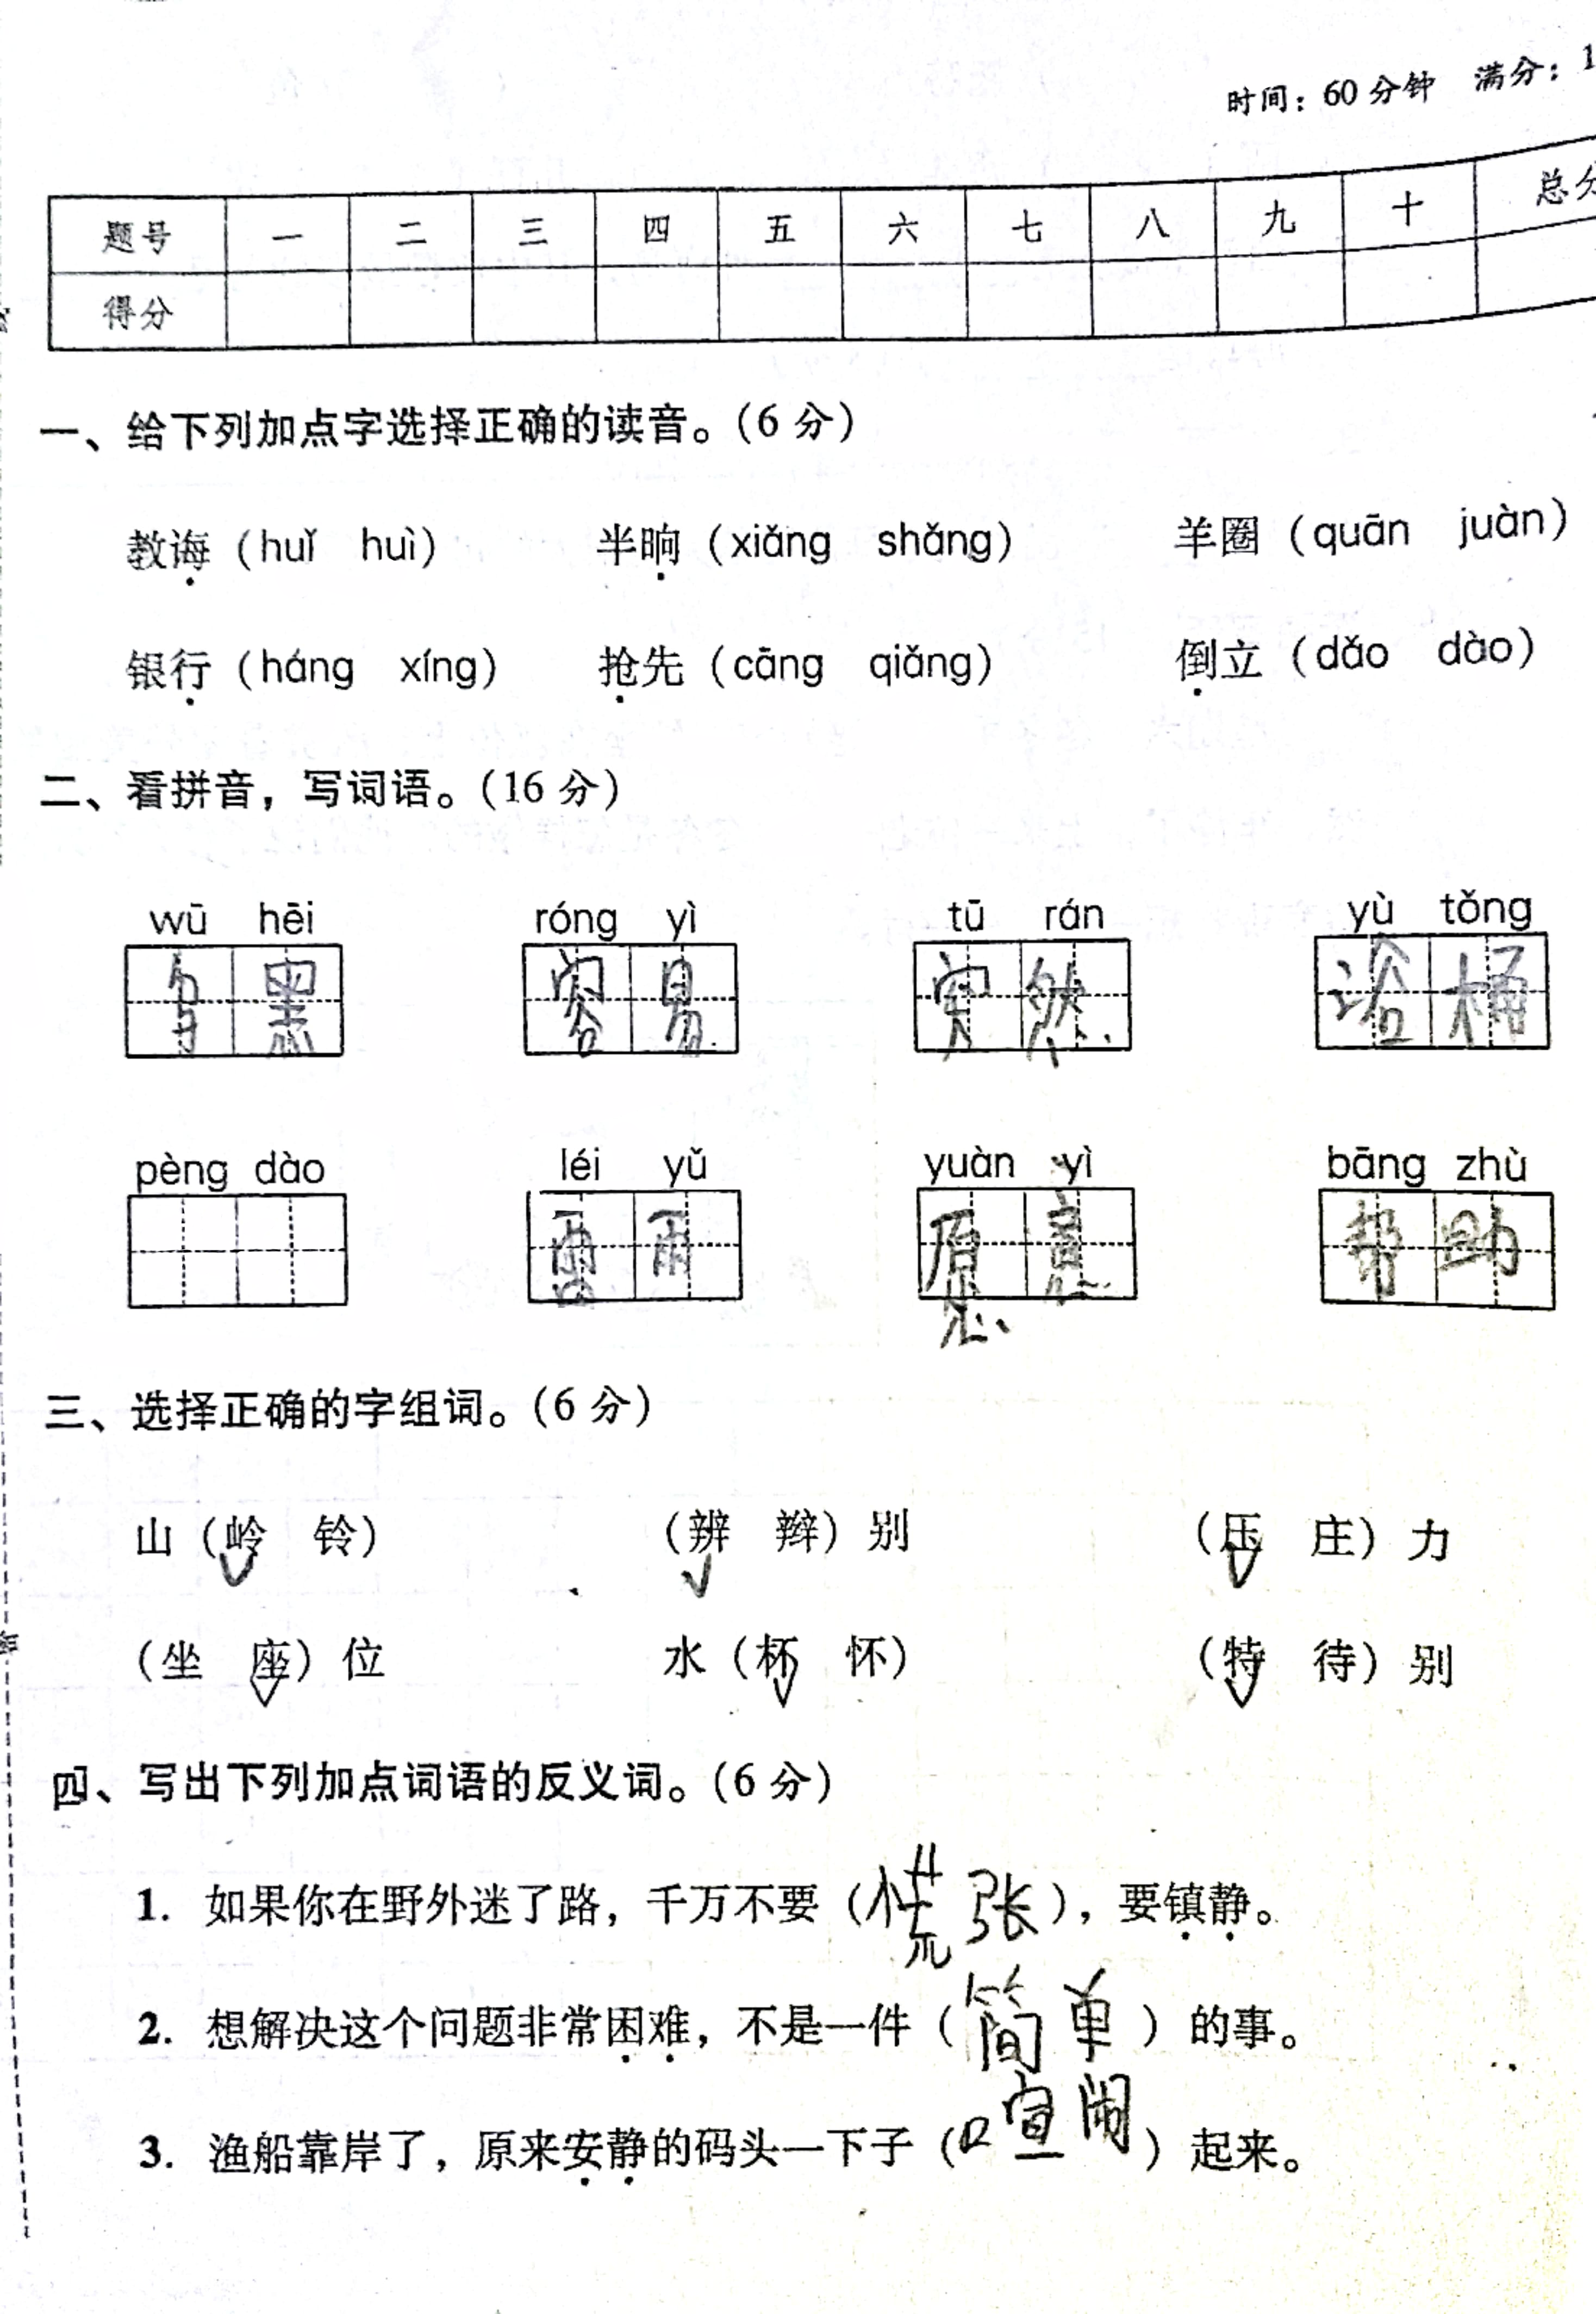 时间：60 分钟 满分：1
题号 一 二 三 四 五 六 七 八 九 十 总分
得分
一、给下列加点字选择正确的读音。（6 分）
教诲（huǐ huì） 半晌（xiǎng shǎng） 羊圈（quān juàn）
银行（háng xíng） 抢先（cāng qiǎng） 倒立（dǎo dào）
二、看拼音，写词语。（16 分）
wū hēi róng yì tū rán yù tǒng
黑 容易 突然 浴桶
pèng dào léi yǔ yuàn yì bāng zhù
雷雨 愿意 帮助
三、选择正确的字组词。（6 分）
山（岭 铃） （辨 辩）别 （压 庄）力
（坐 座）位 水（杯 怀） （特 待）别
四、写出下列加点词语的反义词。（6 分）
1. 如果你在野外迷了路，千万不要（慌张），要镇静。
2. 想解决这个问题非常困难，不是一件（简单）的事。
3. 渔船靠岸了，原来安静的码头一下子（喧闹）起来。